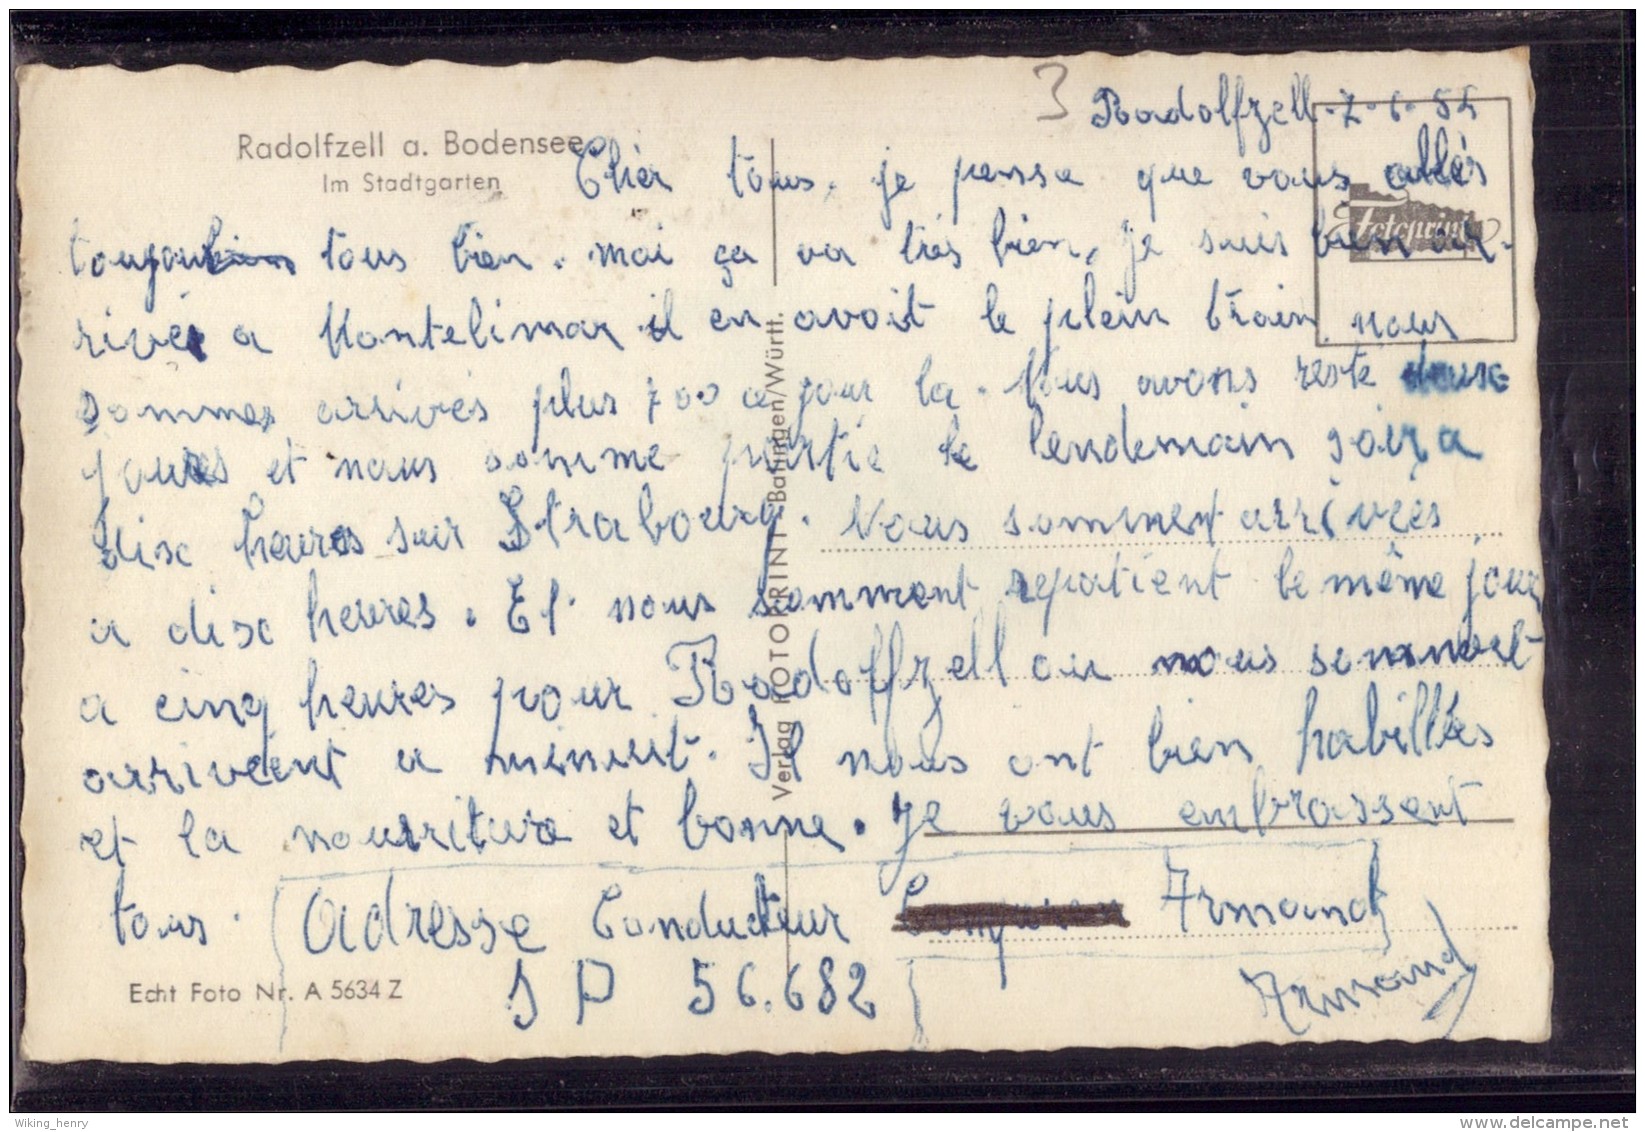 3 Radolfzell. 7-6-54
Radolfzell a. Bodensee
Im Stadtgarten
Chér tous, je pense que vous allés
tous bien. moi ça va très bien, je suis bien ar-
Fotoprint
rivér a Montelimar il en avoit le plein train nous
sommes arrivés plus 700 a jour la. Nous avons resté deuse
jours et nous somme partie le lendemain soir a
disc heures sur Strabourg. Nous somment arrivées
a disc heures. Et nous somment repatient le même jour
a cinq heures pour Radolfzell ou nous somment
arrivent a minuit. Il nous ont bien habillés
et la nourriture et bonne. Je vous embrassent
tous. Adresse Conducteur Armand
S P 56.682
Armand
Echt Foto Nr. A 5634 Z
Verlag FOTOPRINT - Balingen/Württ.
Wiking_henry
delcampe.net